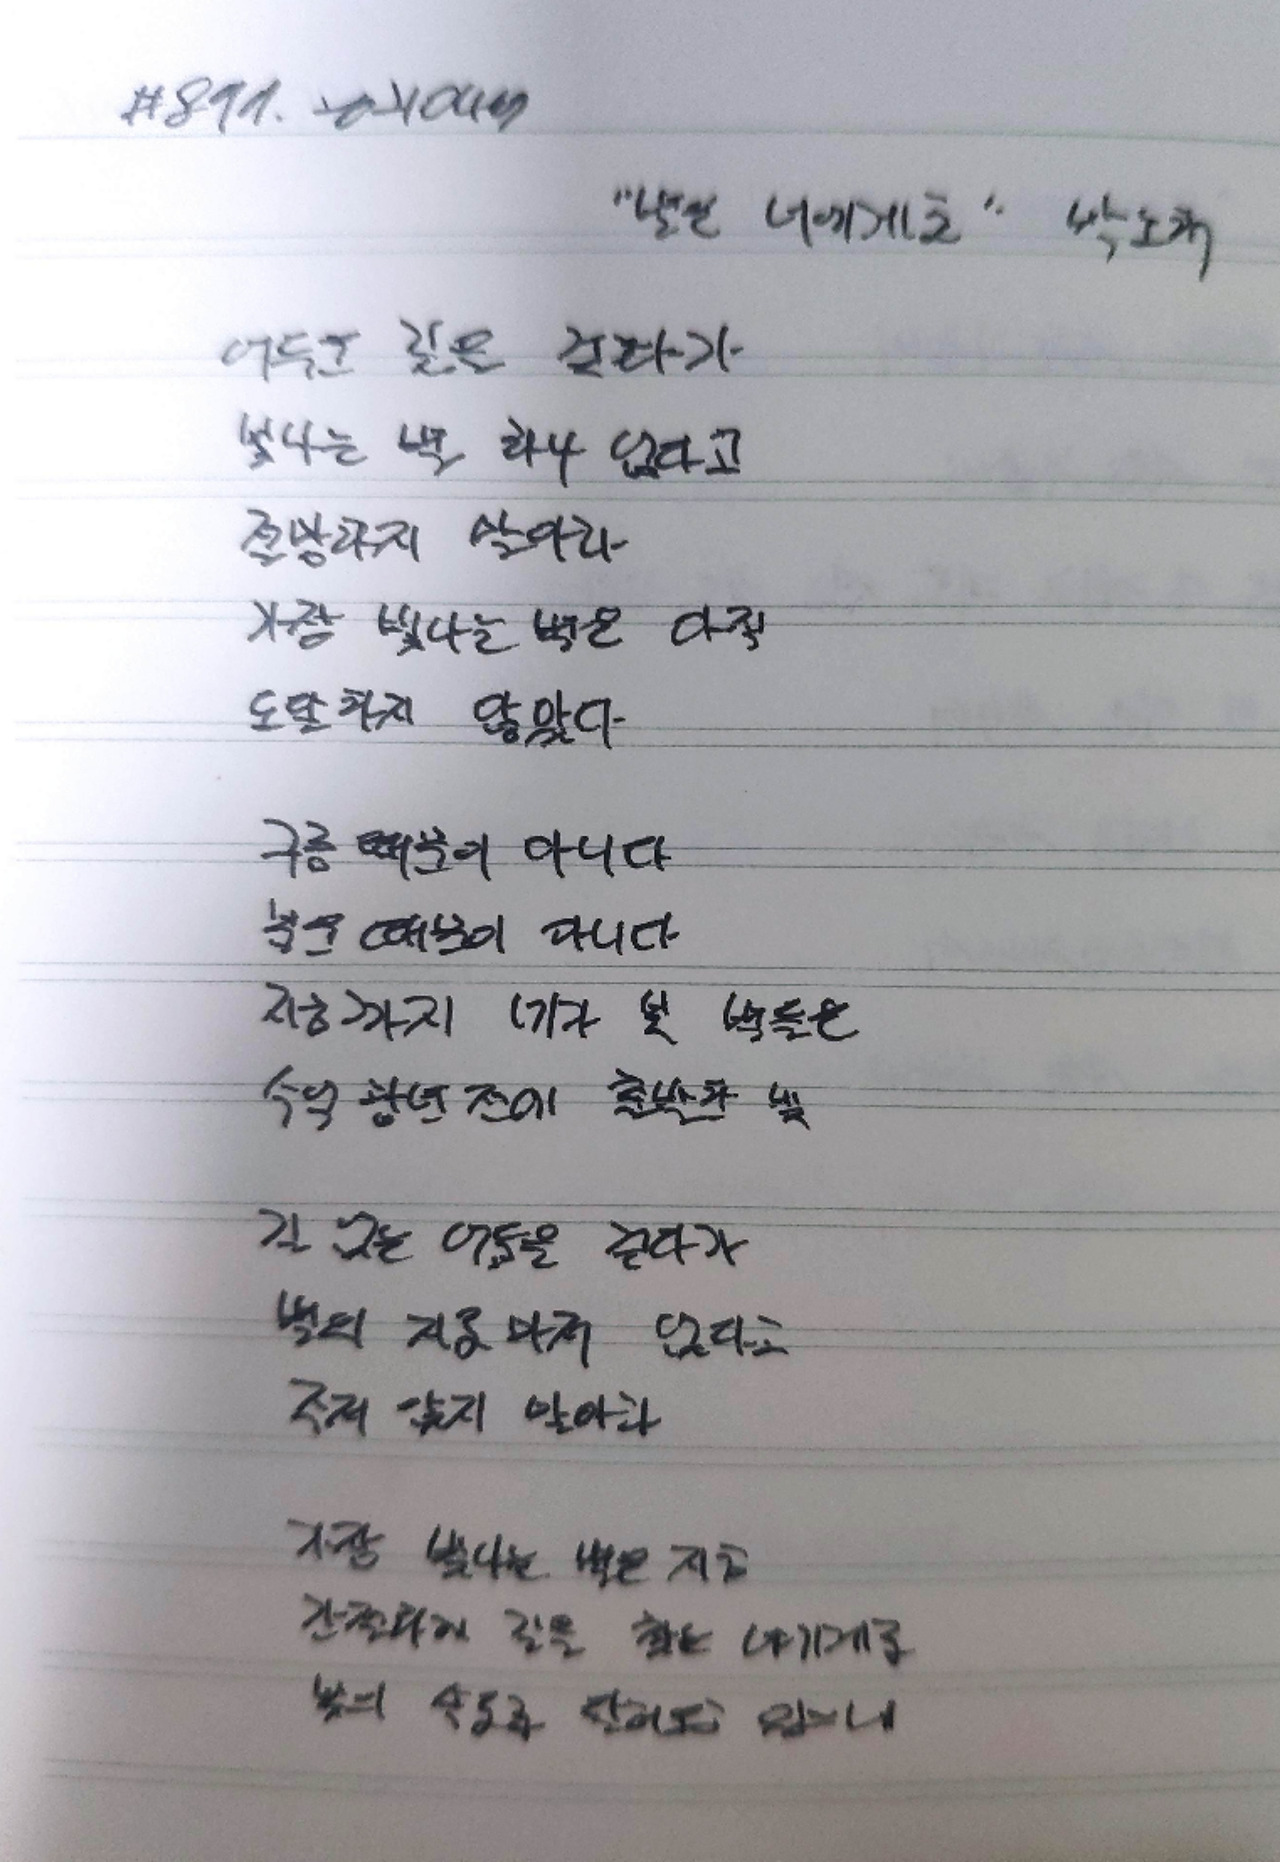 #891.
"별은 너에게로" 박노해
어두운 길을 걷다가
빛나는 별 하나 없다고
절망하지 말아라
가장 빛나는 별은 아직
도달하지 않았다
구름 때문이 아니다
불운 때문이 아니다
지금까지 네가 본 별들은
수억 광년 전에 출발한 빛
길 없는 어둠을 걷다가
별의 지도마저 없다고
주저앉지 말아라
가장 빛나는 별은 지금
간절하게 길을 찾는 너에게로
빛의 속도로 달려오고 있으니